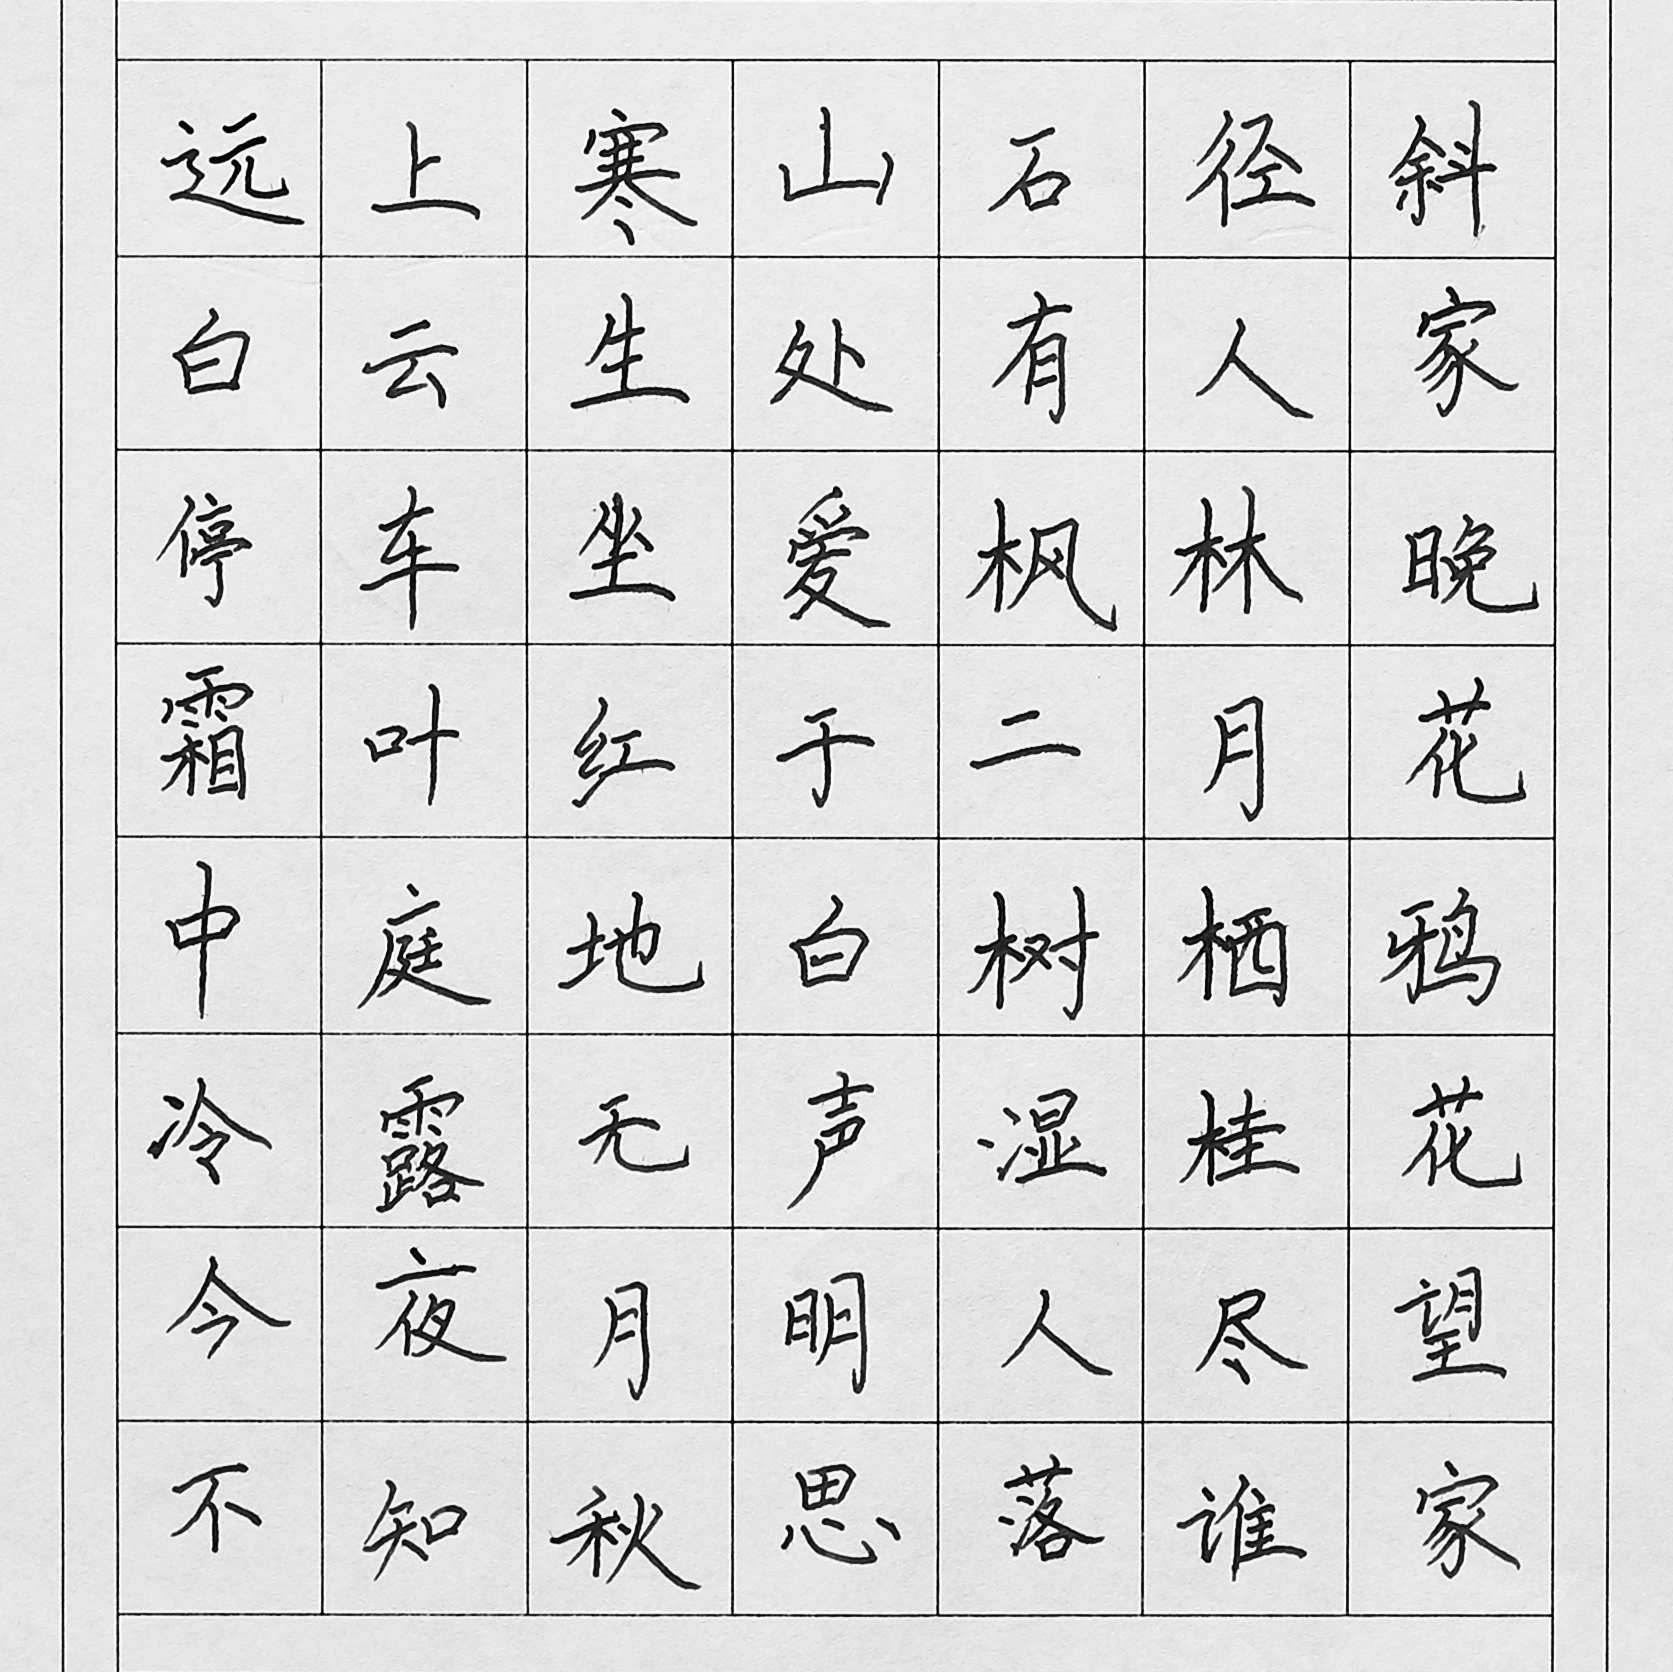 远上寒山石径斜
白云生处有人家
停车坐爱枫林晚
霜叶红于二月花
中庭地白树栖鸦
冷露无声湿桂花
今夜月明人尽望
不知秋思落谁家